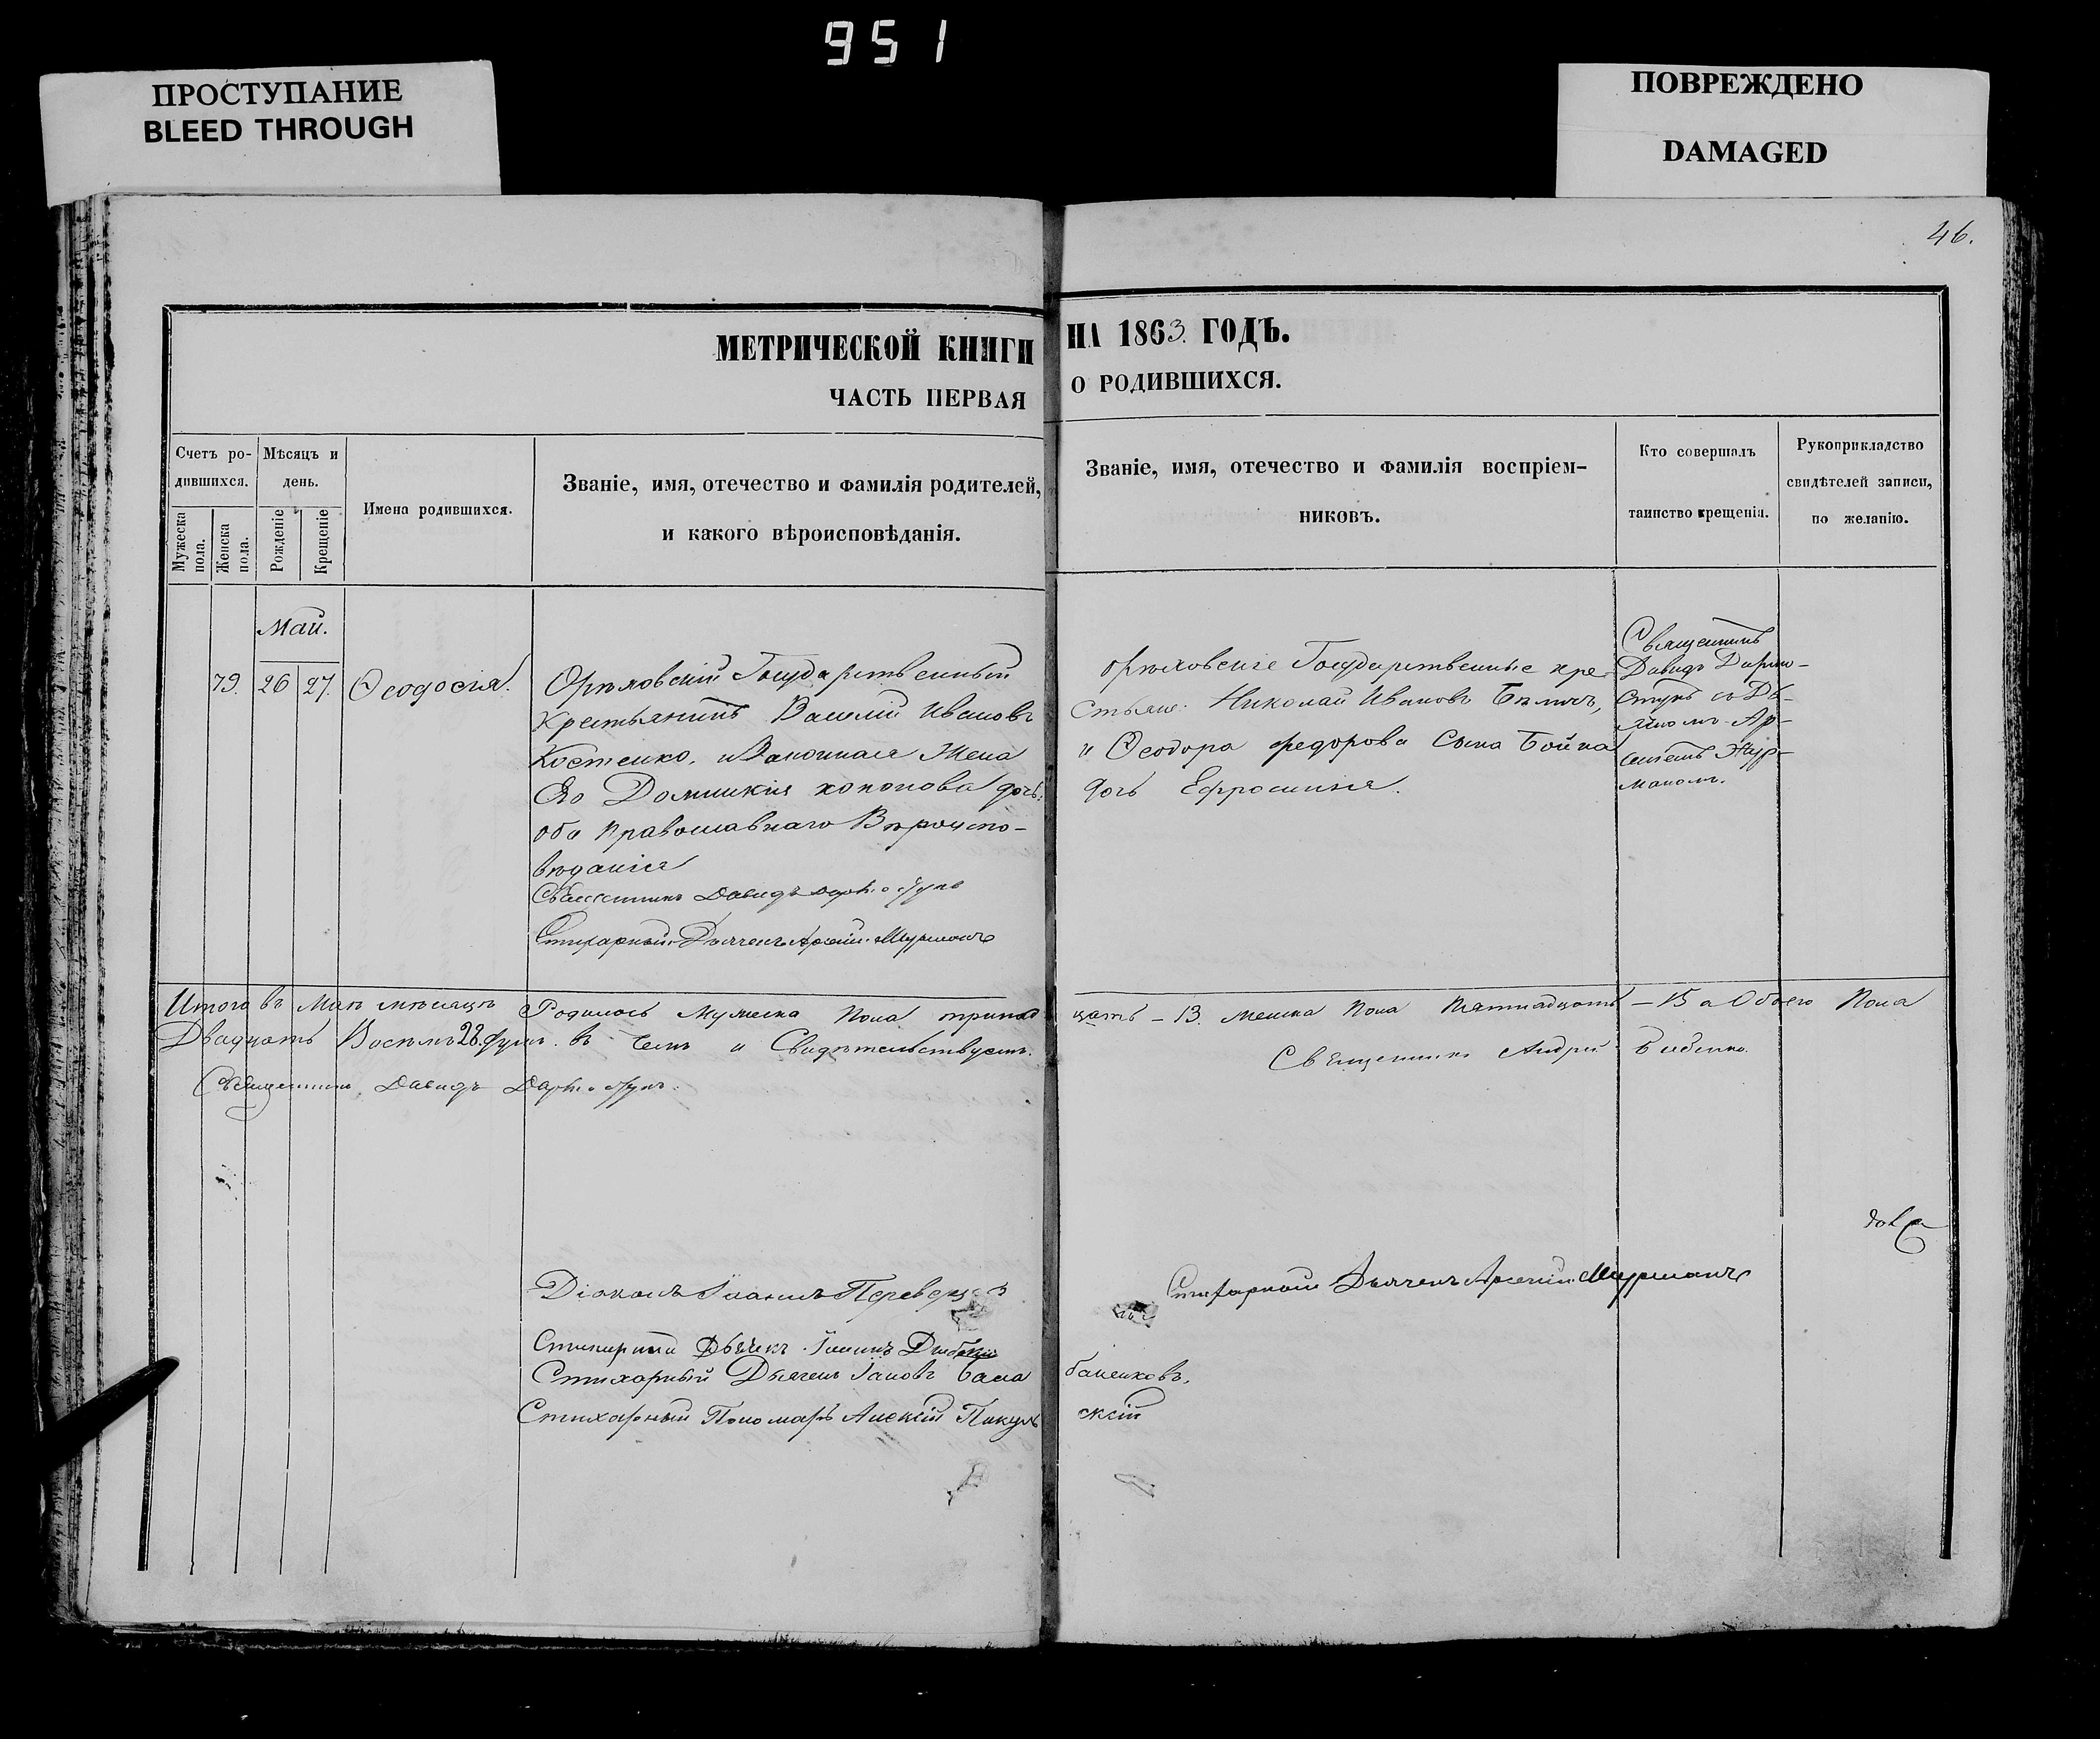 951
ПРОСТУПАНИЕ
BLEED THROUGH
ПОВРЕЖДЕНО
DAMAGED
46.
МЕТРИЧЕСКОЙ КНИГИ НА 1863. ГОДЪ.
ЧАСТЬ ПЕРВАЯ О РОДИВШИХСЯ.
Счетъ ро-
дившихся.
Мужеска пола.
Женска пола.
Мѣсяцъ и
день.
Рожденіе
Крещеніе
Имена родившихся.
Званіе, имя, отечество и фамилія родителей,
и какого вѣроисповѣданія.
Званіе, имя, отечество и фамилія воспріем-
никовъ.
Кто совершалъ
таинство крещенія.
Рукоприкладство
свидѣтелей записи,
по желанію.
Май.
79. 26 27. Ѳеодосія.
Орѣховскій Государственный
Крестьянинъ Василій Ивановъ
Костенко, и Законная Жена
Его Домникія дочь:
оба православнаго Вѣроиспо-
вѣданія
Священникъ Давидъ
Стихарный Дьячекъ Арсеній
орѣховскіе Государственные кре-
стьяне. Николай Ивановъ
и Ѳеодора Федорова Сына Бойка
дочь Ефросинія.
Священникъ
Давидъ
съ Дь-
ячкомъ Ар-
Итого въ Маѣ мѣсяцѣ Родилось Мужеска Пола тринадцать – 13. женска Пола Пятнадцать – 15 а Обоего Пола
Двадцать Восемь 28. душъ. въ чемъ и Свидѣтельствуемъ.
Священникъ Андрей
Священникъ Давидъ
Діаконъ Іоаннъ
Стихарный Дьячекъ Арсеній
Дьячекъ Іоаннъ
Стихарный Дьячекъ Іаковъ Балабаненковъ.
Стихарный Пономарь Алексій Пикульскій